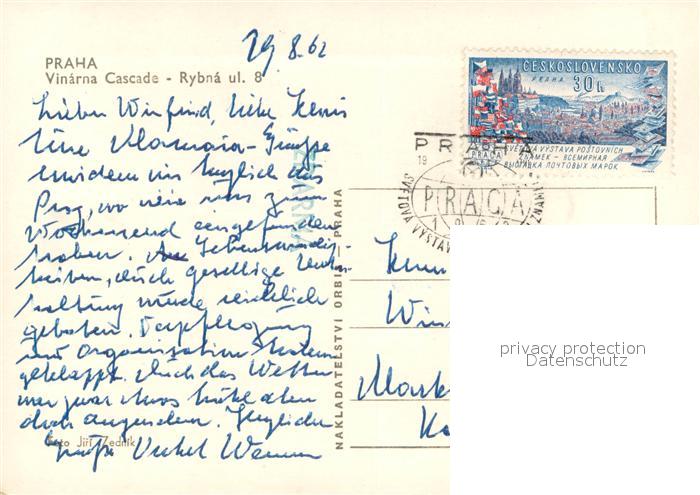 29.8.62
PRAHA
Vinárna Cascade - Rybná ul. 8
Lieber Winfried, liebe
Eure Grüße
erwidern wir herzlich aus
Prag, wo wir uns zum
Wochenend eingefunden
haben. An Sehenswürdig-
keiten, auch gesellige Unter-
haltung wurde reichlich
geboten. Verpflegung
und Organisation bestens
geklappt. Auch das Wetter
war zwar etwas kühl aber
doch angenehm. Herzliche
Grüße Werner
Foto Jiří Zedník
NAKLADATELSTVÍ ORBIS — PRAHA
ČESKOSLOVENSKO
PRAHA
30 h
PRAGA
SVĚTOVÁ VÝSTAVA POŠTOVNÍCH
ZNÁMEK - ВСЕМИРНАЯ
ВЫСТАВКА ПОЧТОВЫХ МАРОК
PRAHA
PRAGA
SVĚTOVÁ VÝSTAV
privacy protection
Datenschutz